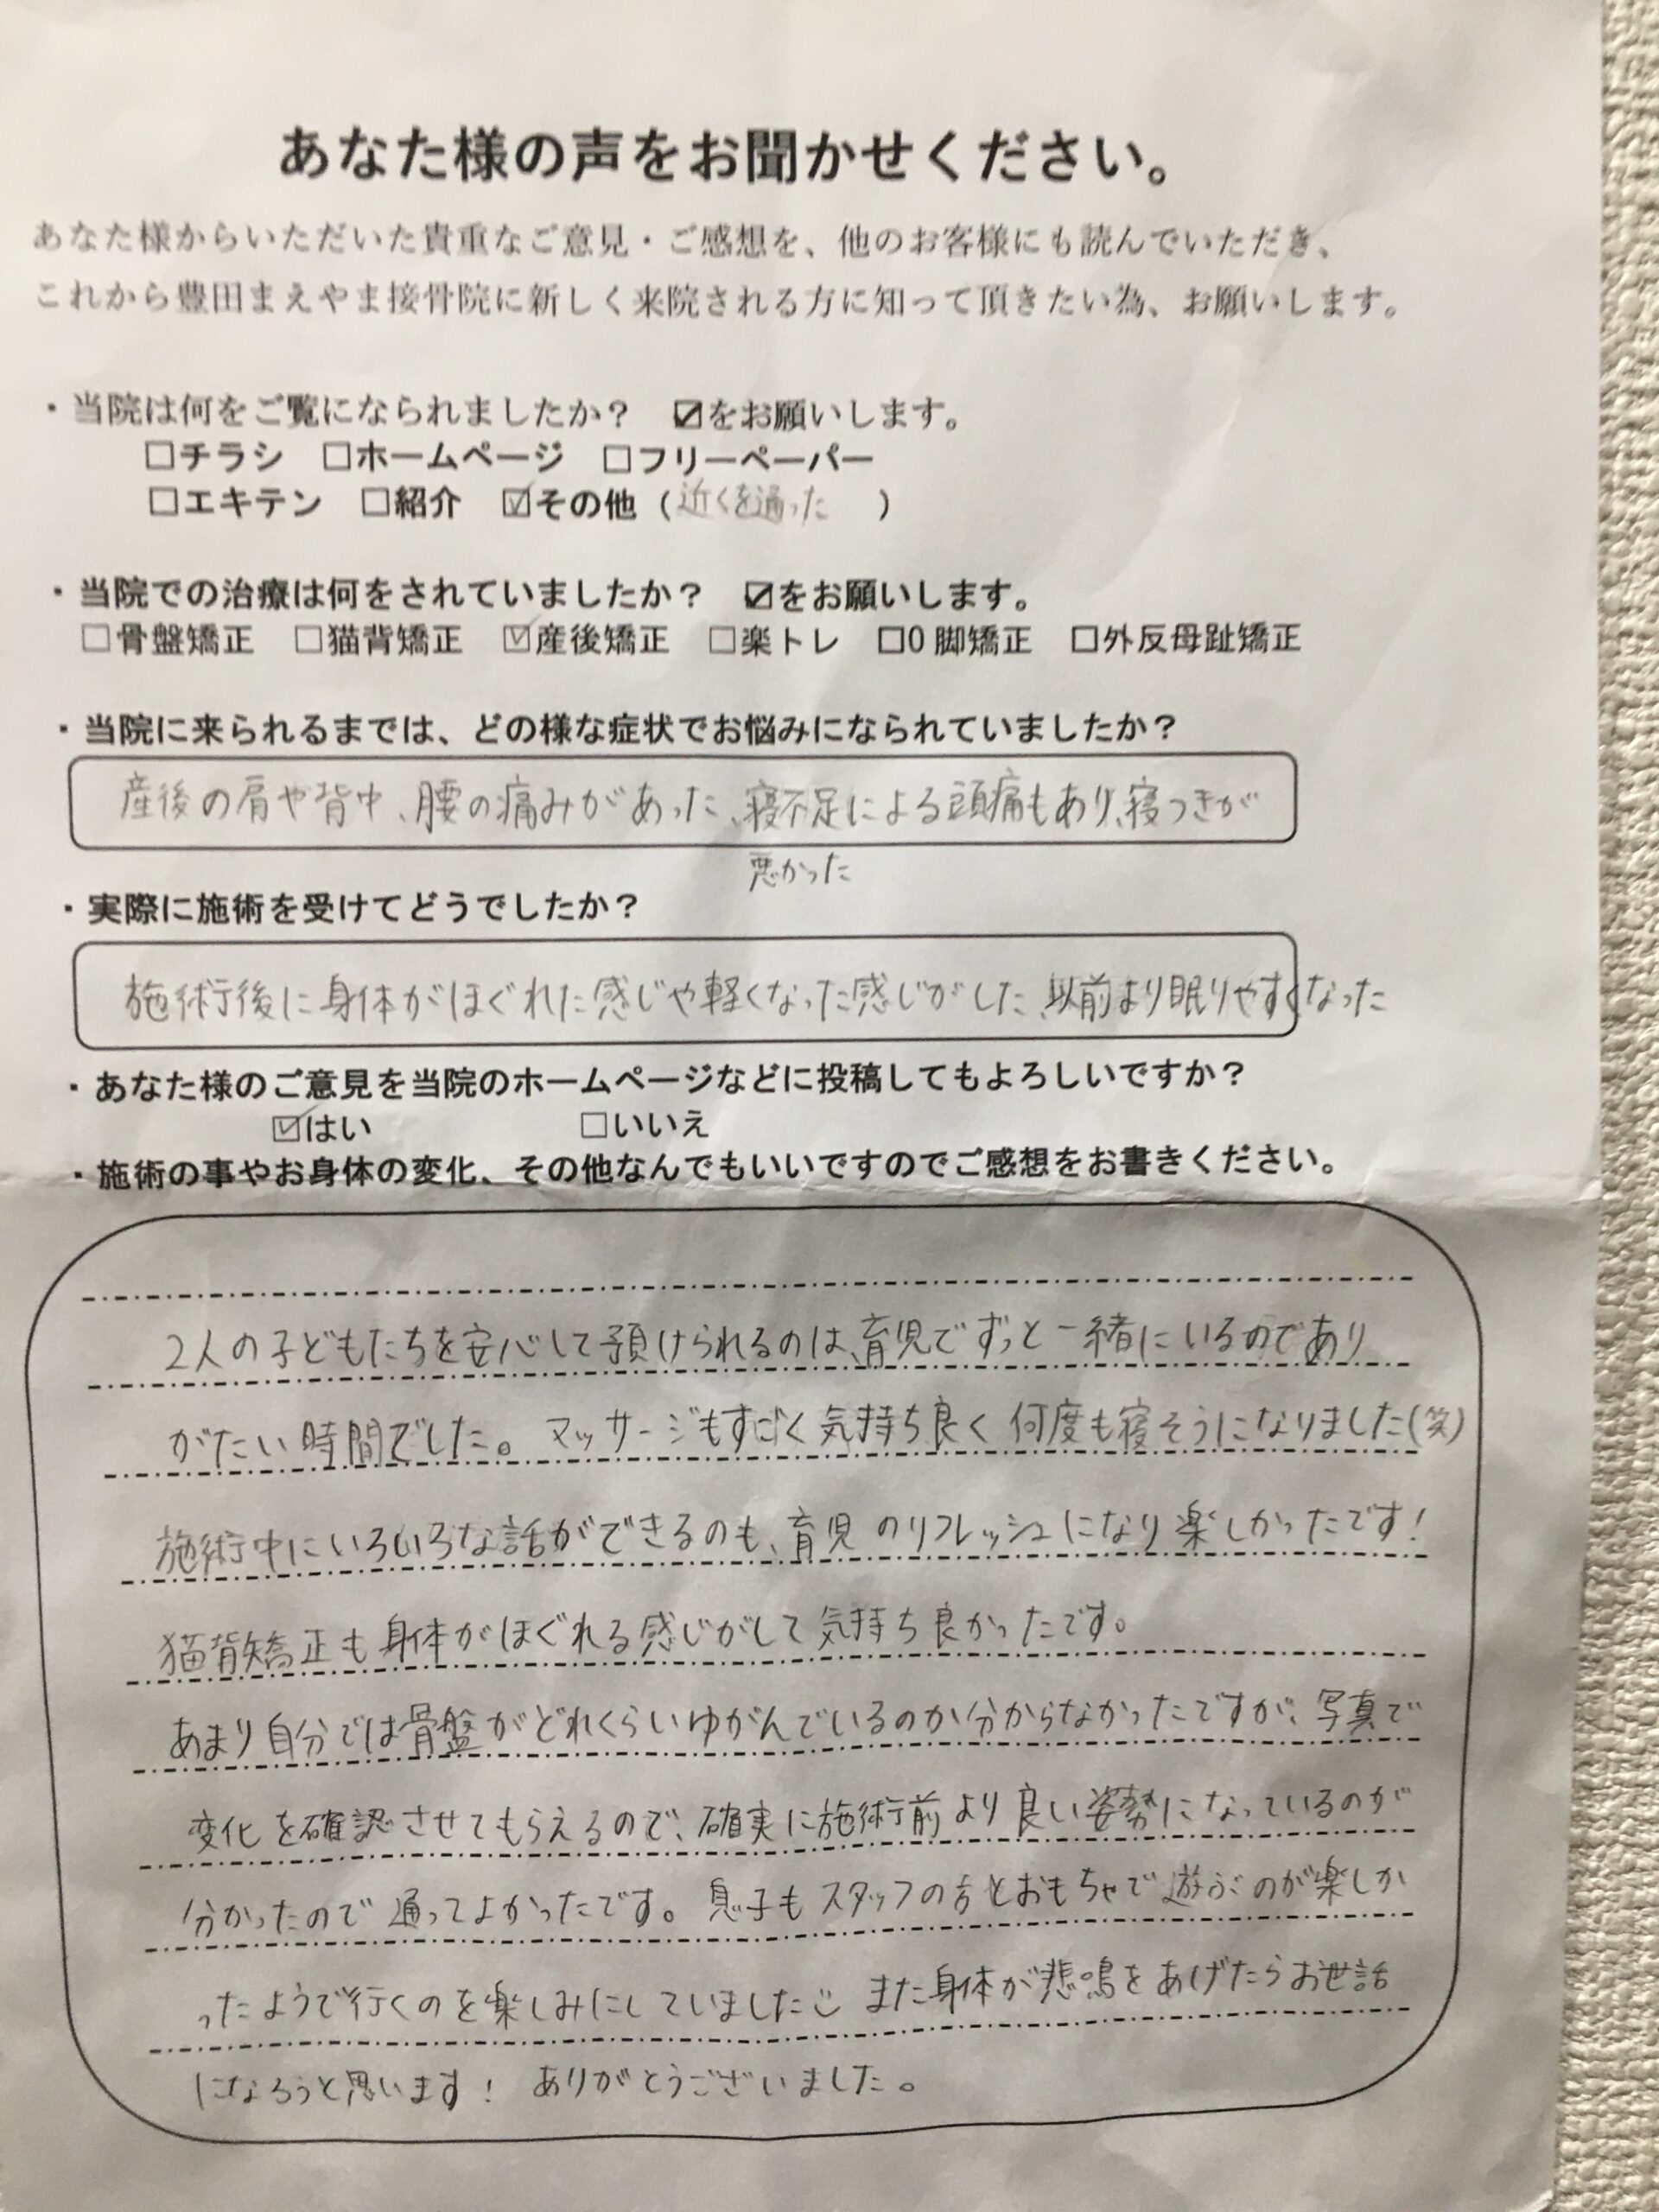 あなた様の声をお聞かせください。
あなた様からいただいた貴重なご意見・ご感想を、他のお客様にも読んでいただき、
これから豊田まえやま接骨院に新しく来院される方に知って頂きたい為、お願いします。
・当院は何をご覧になられましたか？　☑をお願いします。
□チラシ　□ホームページ　□フリーペーパー
□エキテン　□紹介　☑その他（近くを通った　）
・当院での治療は何をされていましたか？　☑をお願いします。
□骨盤矯正　□猫背矯正　☑産後矯正　□楽トレ　□O脚矯正　□外反母趾矯正
・当院に来られるまでは、どの様な症状でお悩みになられていましたか？
産後の肩や背中、腰の痛みがあった、寝不足による頭痛もあり、寝つきが
悪かった
・実際に施術を受けてどうでしたか？
施術後に身体がほぐれた感じや軽くなった感じがした、以前より眠りやすくなった
・あなた様のご意見を当院のホームページなどに投稿してもよろしいですか？
☑はい　□いいえ
・施術の事やお身体の変化、その他なんでもいいですのでご感想をお書きください。
2人の子どもたちを安心して預けられるのは、育児でずっと一緒にいるのであり
がたい時間でした。マッサージもすごく気持ち良く何度も寝そうになりました(笑)
施術中にいろいろな話ができるのも、育児のリフレッシュになり楽しかったです！
猫背矯正も身体がほぐれる感じがして気持ち良かったです。
あまり自分では骨盤がどれくらいゆがんでいるのか分からなかったですが、写真で
変化を確認させてもらえるので、確実に施術前より良い姿勢になっているのが
分かったので通ってよかったです。息子もスタッフの方とおもちゃで遊ぶのが楽しか
ったようで行くのを楽しみにしていました☺ また身体が悲鳴をあげたらお世話
になろうと思います！ ありがとうございました。